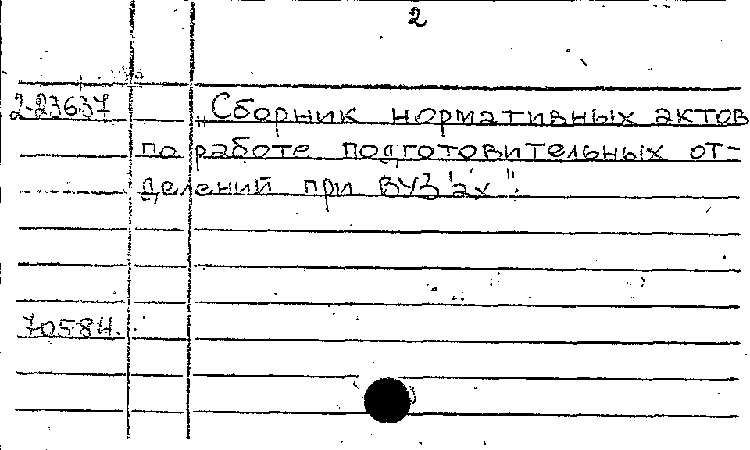 2
2-23637 „Сборник нормативных актов
по работе подготовительных от-
делений при ВУЗ'ах".
70584.